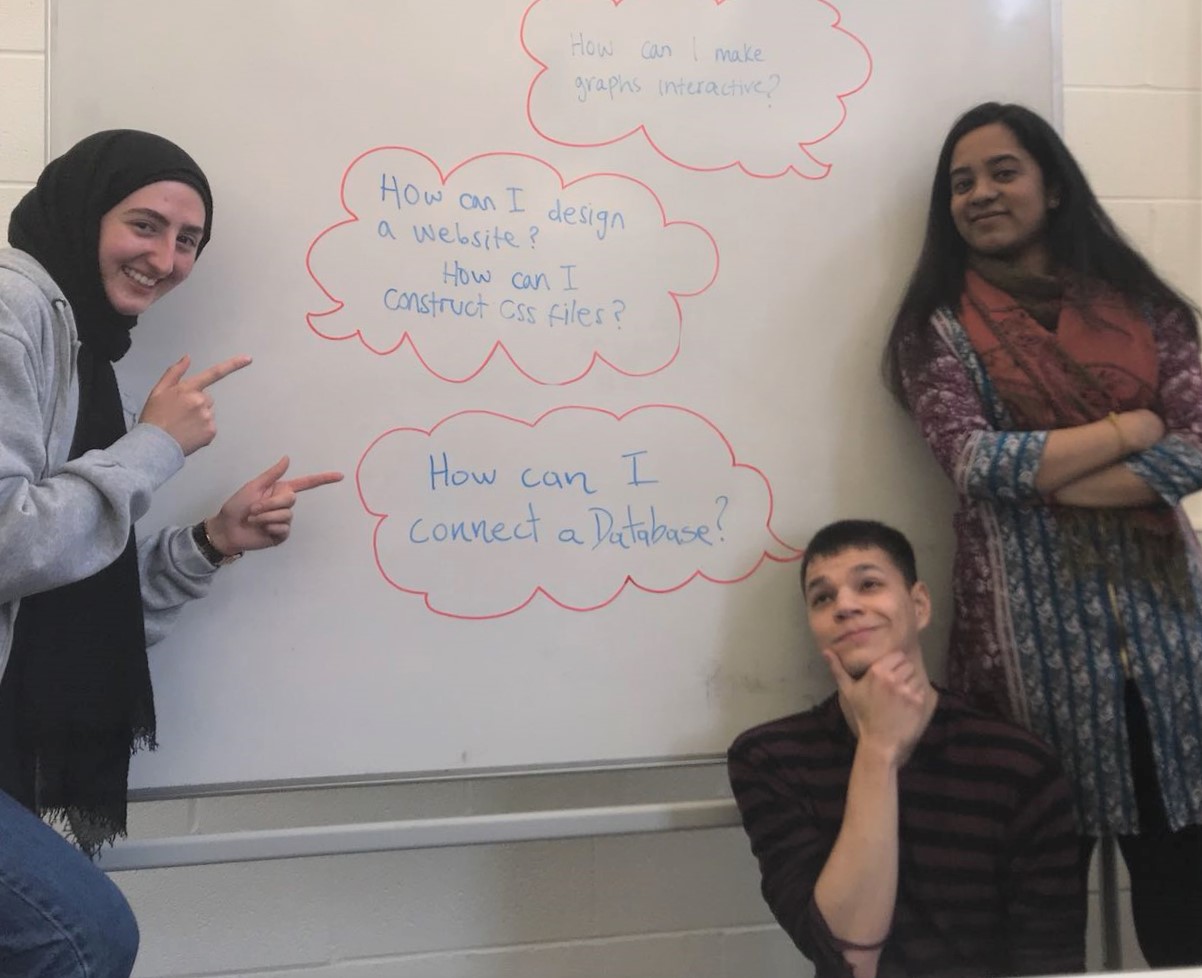 How can I make
graphs interactive?
How can I design
a website?
How can I
construct css files?
How can I
connect a Database?